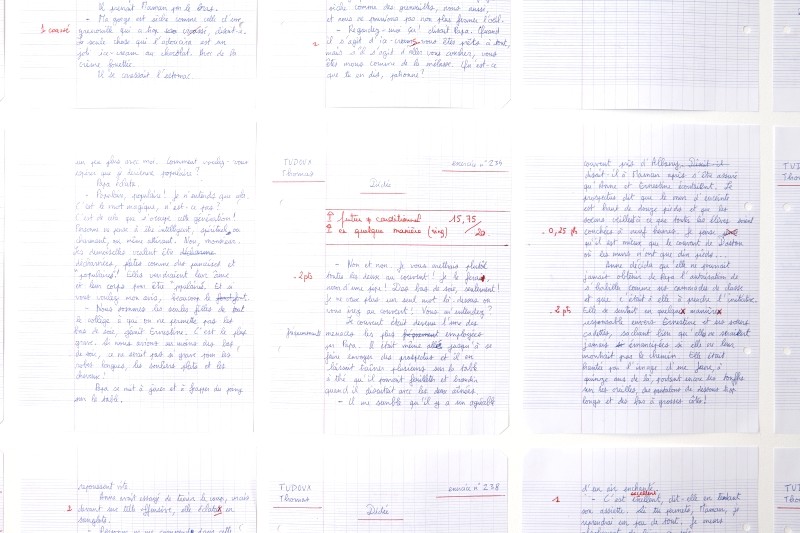 Il suçait Maman par le bras.
- Ma gorge est sèche comme celle d'une
1 coassé
grenouille qui a trop coassé, disait-il.
La seule chose qui l'adoucira est un
joli ice-cream au chocolat. Avec de la
crème fouettée.
Il se caressait l'estomac.
sèche comme des grenouilles, nous aussi,
et nous ne pouvions pas non plus fermer l'œil.
- Regardez-moi ça! disait Papa. Quand
1
il s'agit d'ice-creams, vous êtes prêts à tout,
mais s'il s'agit d'elles vous couchez, vous
êtes mous comme de la mélasse. Qu'est-ce
que tu en dis, patronne?
un peu plus avec moi. Comment voulez-vous
espérer que je devienne populaire?
Papa éclata.
- Populaire, populaire! Je n'entends que ça.
C'est le mot magique, n'est-ce pas?
C'est de cela que s'occupe cette génération!
charmant, ou même attirant. Non, monsieur.
Les demoiselles veulent être
desséchées, plates comme des punaises et
"populaires"! Elles vendraient leur âme
et leur corps pour être "populaires". Et si
vous voulez mon avis, beaucoup le font.
- Nous sommes les seules filles de tout
le collège à qui on ne permette pas les
bas de soie, gémit Ernestine. C'est le plus
grave. Si nous avions au moins des bas
de soie, ce ne serait pas si grave pour les
robes longues, les souliers plats et les
cheveux!
Papa se mit à gauche et à frapper du poing
sur la table.
TUDOUX
Thomas
exercice n° 236
Dictée
futur ≠ conditionnel
en quelque manière (sing)
15,75/20
- Non et non. Je vous mettrais plutôt
- 2 pts
toutes les deux au couvent! Je le ferai,
nom d'une pipe! Des bas de soie, seulement!
Je ne veux plus un seul mot là-dessus ou
vous irez au couvent! Vous m'entendez?
Le couvent était devenu l'une des
menaces les plus employées
par Papa. Il était même allé jusqu'à se
faire envoyer des prospectus et il en
laissait traîner plusieurs sur la table
à thé qu'il pouvait feuilleter et brandir
quand il discutait avec les aînées.
- Il me semble qu'il y a un agréable
couvent près d'Albany,
disait-il à Maman après s'être assuré
qu'Anne et Ernestine écoutaient. Le
prospectus dit que le mur d'enceinte
est haut de douze pieds et que les
sœurs veillent à ce que toutes les élèves soient
- 0,25 pt
couchées à neuf heures. Je pense
qu'il est mieux que le couvent de Boston
où les murs n'ont que dix pieds...
Anne décida qu'elle ne pourrait
jamais obtenir de Papa l'autorisation de
s'habiller comme ses camarades de classe
et que c'était à elle à prendre l'initiative.
- 2 pts
Elle se sentait en quelque manière
responsable envers Ernestine et ses sœurs
cadettes, sachant bien qu'elles ne seraient
jamais émancipées si elle ne leur
montrait pas le chemin. Elle était
hantée par l'image de Jane, à
quinze ans de là, portant encore des touffes
sur les oreilles, des pantalons de dessous trop
longs et des bas à grosses côtes!
repoussent vite.
Anne avait essayé de tenir le coup, mais
1
devant une telle offensive, elle éclata en
sanglots.
TUDOUX
Thomas
exercice n° 238
Dictée
d'un air enchanté.
excellent
1
- C'est excellent, dit-elle en tendant
son assiette. Si tu permets, Maman, je
reprendrai un peu de tout. Je meurs